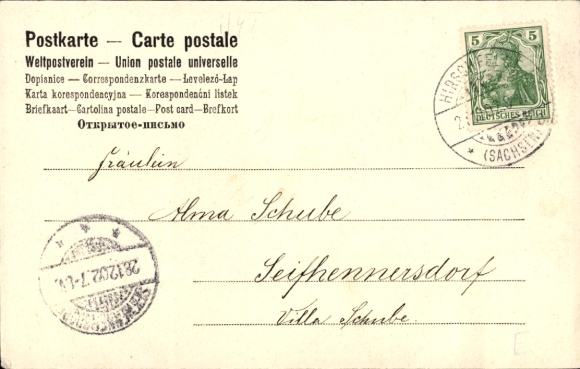 Postkarte — Carte postale
Weltpostverein — Union postale universelle
Dopisnice — Correspondenzkarte — Levelező-Lap
Karta korespondencyjna — Korespondenční listek
Briefkaart — Cartolina postale — Post card — Brefkort
Открытое-письмо
5 5
DEUTSCHES REICH
(SACHSEN)
Fräulein
Alma Schube
Seifhennersdorf
Villa Schube.
28.12.02.7-